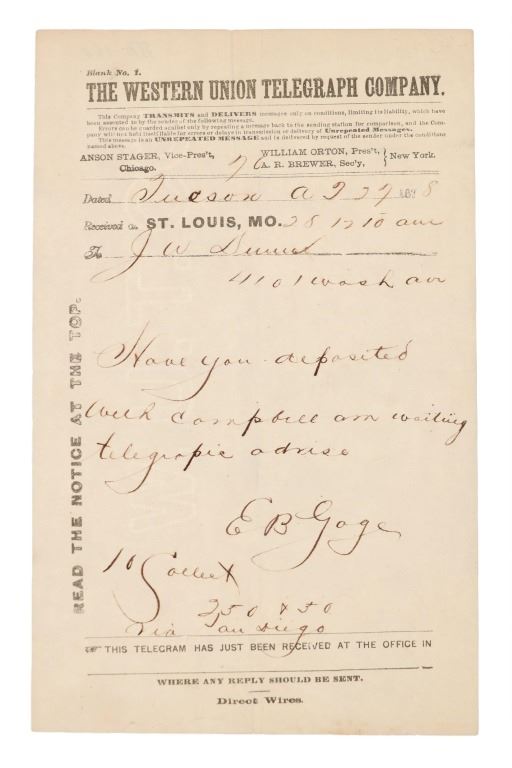 Blank No. 1.
THE WESTERN UNION TELEGRAPH COMPANY.
This Company TRANSMITS and DELIVERS messages only on conditions, limiting its liability, which have
been assented to by the sender of the following message.
Errors can be guarded against only by repeating a message back to the sending station for comparison, and the Com-
pany will not hold itself liable for errors or delays in transmission or delivery of Unrepeated Messages.
This message is an UNREPEATED MESSAGE and is delivered by request of the sender under the conditions
named above.
ANSON STAGER, Vice-Pres't, Chicago.
WILLIAM ORTON, Pres't, A. R. BREWER, Sec'y, } New York.
Dated Tucson A T 27 8
Received at ST. LOUIS, MO. 28 12 10 am
To J W
4101 Wash av
Have you deposited
with Campbell am waiting
telegrapic advise
E B Gage
10 Collect
250 & 50
via San Diego
THIS TELEGRAM HAS JUST BEEN RECEIVED AT THE OFFICE IN
WHERE ANY REPLY SHOULD BE SENT.
Direct Wires.
READ THE NOTICE AT THE TOP.